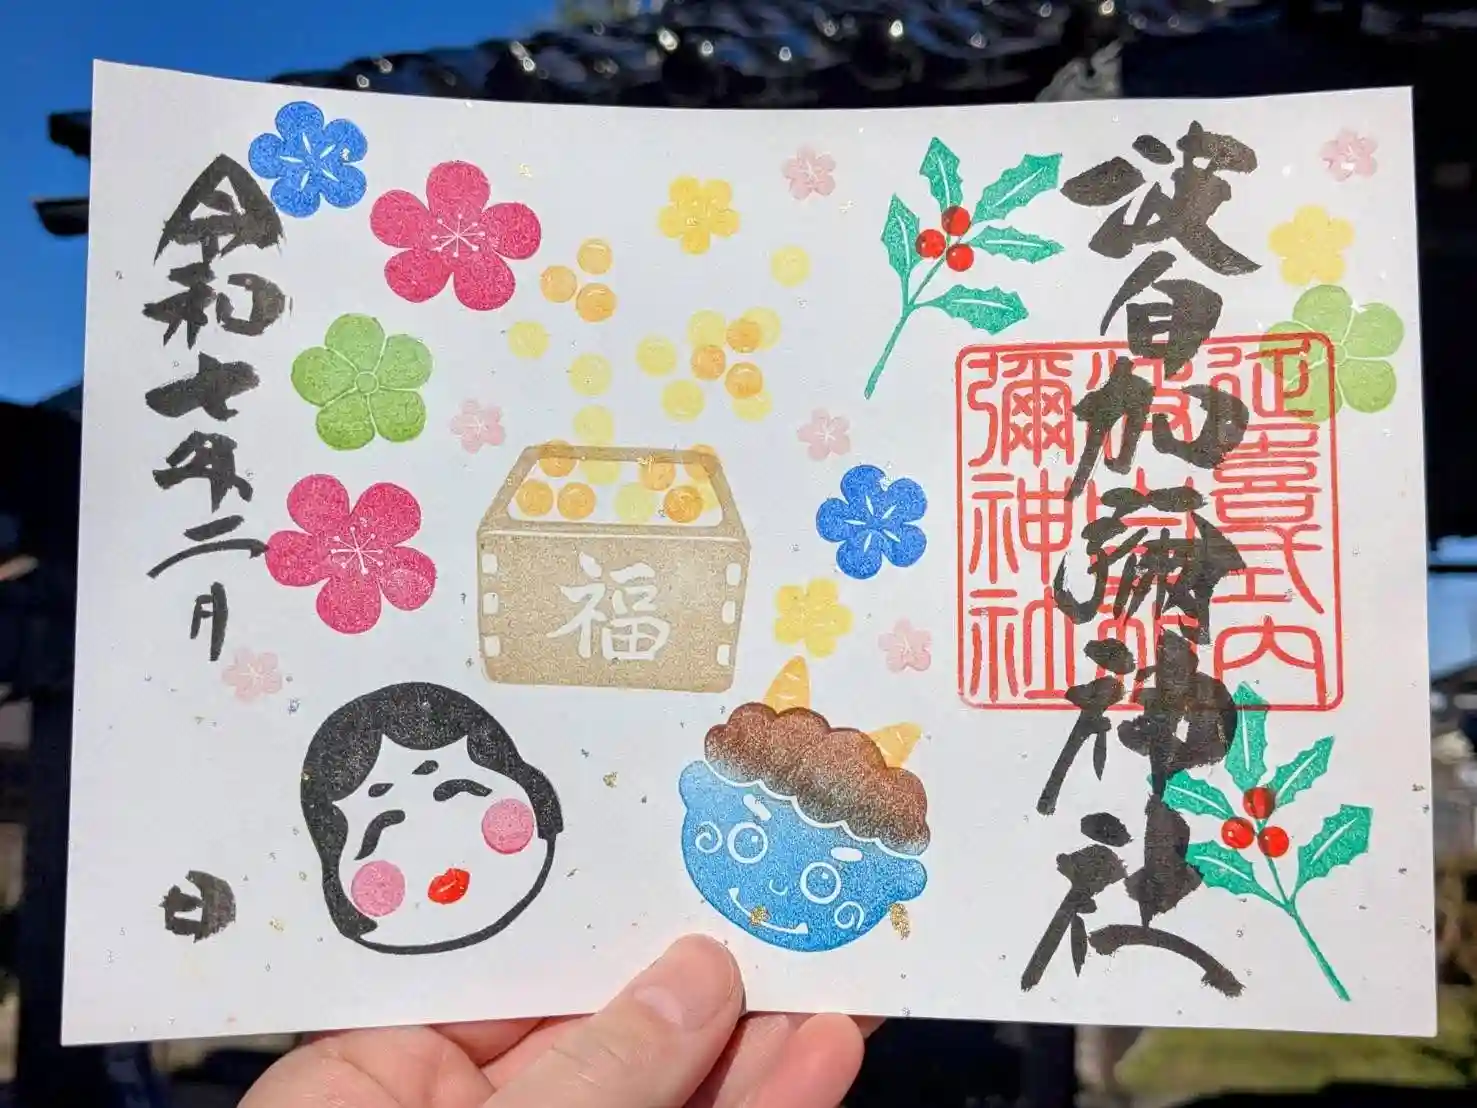 波自加彌神社
延喜式内
波自加
彌神社
福
令和七年二月
日